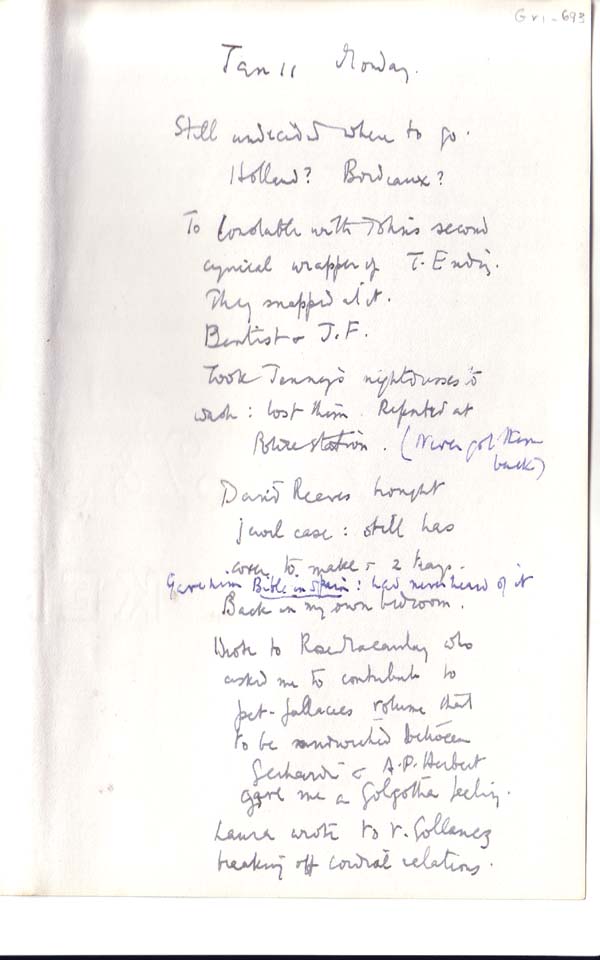 Gri-693
Jan 11 Monday.
Still undecided where to go.
Holland? Bordeaux?
To Constable with John's second
cynical wrapper of T. Ending.
They snapped at it.
Dentist & J.F.
Took Jenny's nightdresses to
wash: lost them. Reported at
Police station. (Never got them
back)
David Reeves brought
jewel case: still has
cover to make & 2 trays.
Gave him Bible in Spain: had never heard of it
Back in my own bedroom.
Wrote to Rose Macaulay who
asked me to contribute to
pet-fallacies volume that
to be sandwiched between
Gerhardi & A.P. Herbert
gave me a Golgotha feeling.
Laura wrote to V. Gollancz
breaking off cordial relations.